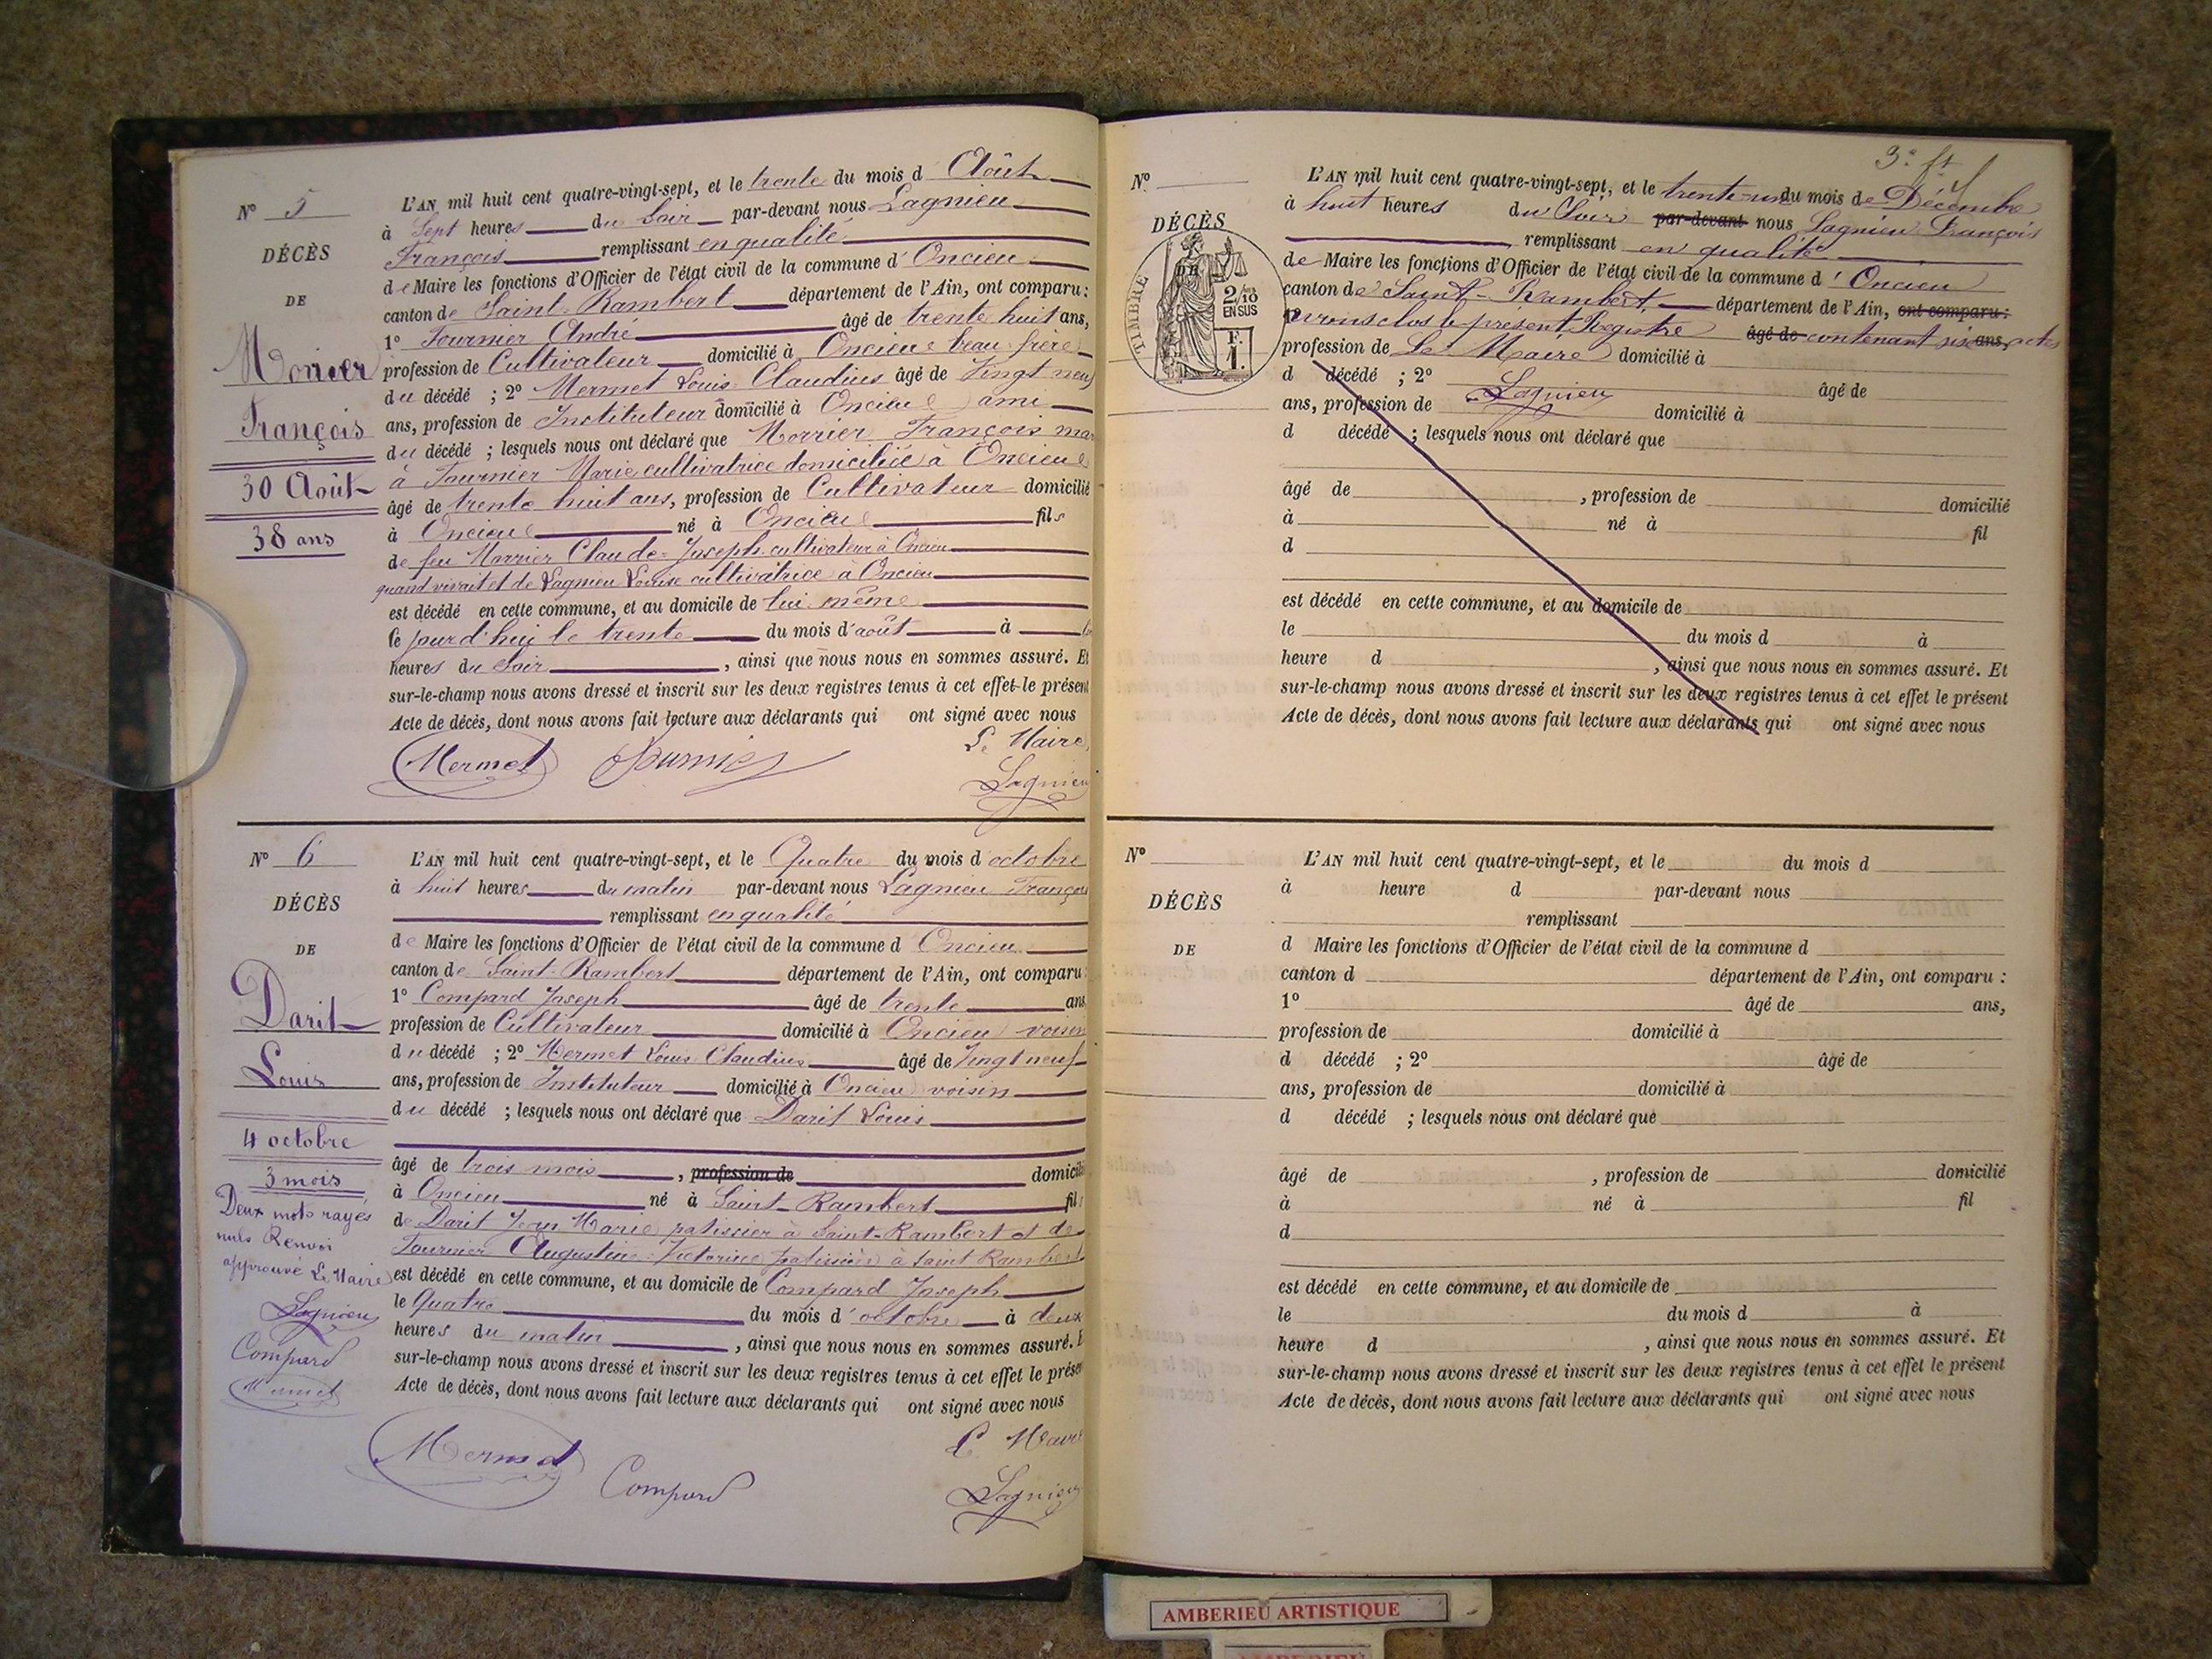 N° 5
DÉCÈS
DE
Morrier
François
30 Août
38 ans
L'AN mil huit cent quatre-vingt-sept, et le trente du mois d'Août
à Sept heures du Soir par-devant nous Lagnieu
François remplissant en qualité
de Maire les fonctions d'Officier de l'état civil de la commune d'Oncieu
canton de Saint-Rambert département de l'Ain, ont comparu :
1° Tournier André âgé de trente huit ans,
profession de Cultivateur domicilié à Oncieu beau-frère
du décédé ; 2° Mermet Louis Claudius âgé de Vingt neuf
ans, profession de Instituteur domicilié à Oncieu ami
du décédé ; lesquels nous ont déclaré que Morrier François mari
à Tournier Marie cultivatrice domiciliée à Oncieu
âgé de trente huit ans, profession de Cultivateur domicilié
à Oncieu né à Oncieu fils
de feu Morrier Claude-Joseph cultivateur à Oncieu
quand vivait et de Lagnieu Louise cultivatrice à Oncieu
est décédé en cette commune, et au domicile de lui-même
le jourd'hui le trente du mois d'août à
heures du Soir, ainsi que nous nous en sommes assuré. Et
sur-le-champ nous avons dressé et inscrit sur les deux registres tenus à cet effet le présent
Acte de décès, dont nous avons fait lecture aux déclarants qui ont signé avec nous
Le Maire,
Mermet Tournier Lagnieu
N° 6
DÉCÈS
DE
Darit
Louis
4 octobre
3 mois
Deux mots rayés
nuls Renvoi
approuvé Le Maire
Lagnieu
Compard
Mermet
L'AN mil huit cent quatre-vingt-sept, et le Quatre du mois d'octobre
à huit heures du matin par-devant nous Lagnieu François
remplissant en qualité
de Maire les fonctions d'Officier de l'état civil de la commune d Oncieu
canton de Saint-Rambert département de l'Ain, ont comparu :
1° Compard Joseph âgé de trente ans
profession de Cultivateur domicilié à Oncieu voisin
du décédé ; 2° Mermet Louis Claudius âgé de Vingt neuf
ans, profession de Instituteur domicilié à Oncieu voisin
du décédé ; lesquels nous ont déclaré que Darit Louis
âgé de trois mois, profession de domicilié
à Oncieu né à Saint-Rambert fils
de Darit Jean Marie patissier à Saint-Rambert et de
Tournier Augustine Victorine patissière à Saint Rambert
est décédé en cette commune, et au domicile de Compard Joseph
le Quatre du mois d'octobre à deux
heures du matin, ainsi que nous nous en sommes assuré. E
sur-le-champ nous avons dressé et inscrit sur les deux registres tenus à cet effet le prése
Acte de décès, dont nous avons fait lecture aux déclarants qui ont signé avec nous
Le Maire
Mermet Compard Lagnieu
3e ft
N°
DÉCÈS
DE
TIMBRE
2/10
EN SUS
F.
1.
L'AN mil huit cent quatre-vingt-sept, et le trente-un du mois de Décembre
à huit heures du Soir par-devant nous Lagnieu François
remplissant en qualité
de Maire les fonctions d'Officier de l'état civil de la commune d'Oncieu
canton de Saint-Rambert, département de l'Ain, ont comparu :
1° avons clos le présent Registre âgé de contenant six ans, actes
profession de Le Maire domicilié à
d décédé ; 2° Lagnieu âgé de
ans, profession de domicilié à
d décédé ; lesquels nous ont déclaré que
âgé de , profession de domicilié
à né à fil
d
est décédé en cette commune, et au domicile de
le du mois d à
heure d , ainsi que nous nous en sommes assuré. Et
sur-le-champ nous avons dressé et inscrit sur les deux registres tenus à cet effet le présent
Acte de décès, dont nous avons fait lecture aux déclarants qui ont signé avec nous
N°
DÉCÈS
DE
L'AN mil huit cent quatre-vingt-sept, et le du mois d
à heure d par-devant nous
remplissant
d Maire les fonctions d'Officier de l'état civil de la commune d
canton d département de l'Ain, ont comparu :
1° âgé de ans,
profession de domicilié à
d décédé ; 2° âgé de
ans, profession de domicilié à
d décédé ; lesquels nous ont déclaré que
âgé de , profession de domicilié
à né à fil
d
est décédé en cette commune, et au domicile de
le du mois d à
heure d , ainsi que nous nous en sommes assuré. Et
sur-le-champ nous avons dressé et inscrit sur les deux registres tenus à cet effet le présent
Acte de décès, dont nous avons fait lecture aux déclarants qui ont signé avec nous
AMBERIEU ARTISTIQUE
AMBERIEU